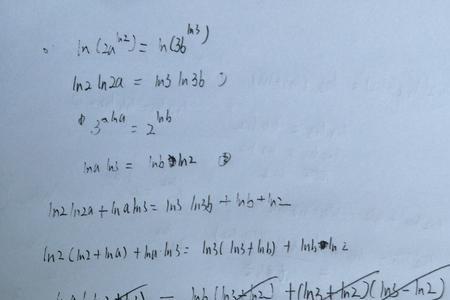 ln(2a^ln2) = ln(3b^ln3)
ln2 ln2a = ln3 ln3b ①
3^lna = 2^lnb
lna ln3 = lnb ln2 ②
ln2 ln2a + lna ln3 = ln3 ln3b + lnb + ln2
ln2(ln2 + lna) + lna·ln3 = ln3(ln3 + lnb) + lnb ln2
= lnb(ln3+ln2) + (ln3+ln2)(ln3-ln2)